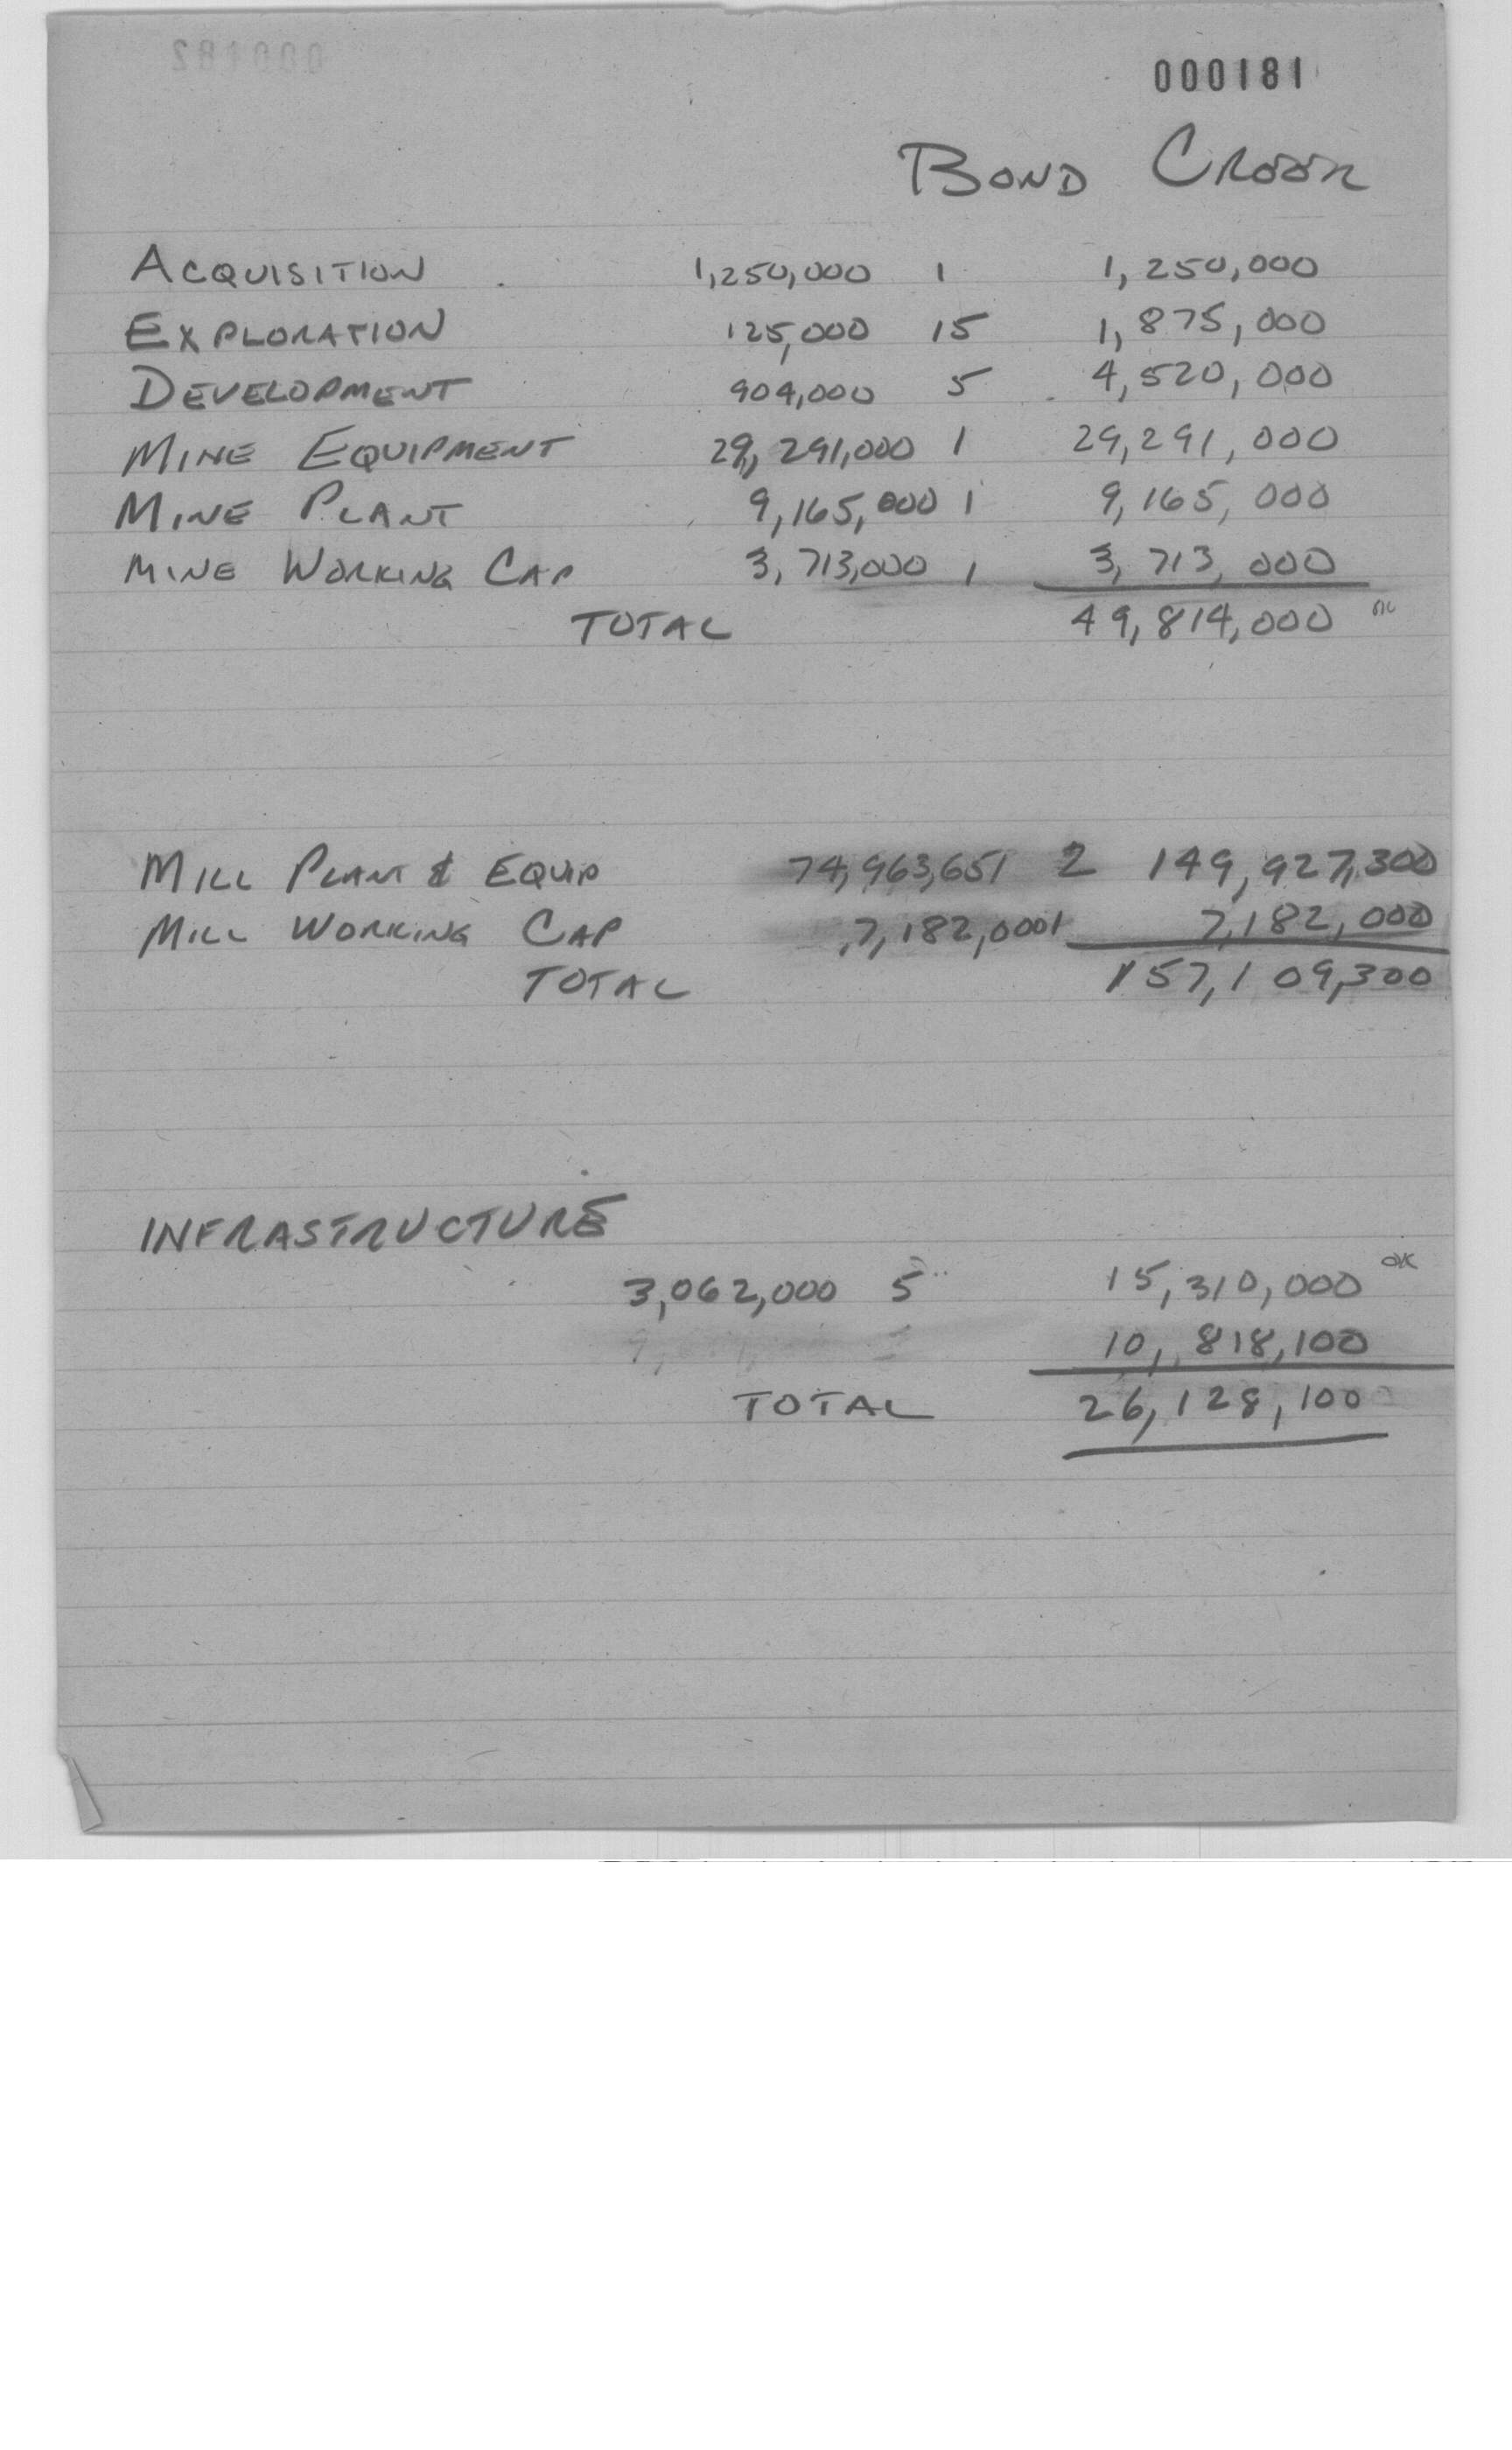 000182
000181
BOND CREEK
ACQUISITION 1,250,000 1 1,250,000
EXPLORATION 125,000 15 1,875,000
DEVELOPMENT 904,000 5 4,520,000
MINE EQUIPMENT 29,291,000 1 29,291,000
MINE PLANT 9,165,000 1 9,165,000
MINE WORKING CAP 3,713,000 1 3,713,000
TOTAL 49,814,000 OK
MILL PLANT & EQUIP 74,963,651 2 149,927,300
MILL WORKING CAP 7,182,000 1 7,182,000
TOTAL 157,109,300
INFRASTRUCTURE
3,062,000 5 15,310,000 OK
10,818,100
TOTAL 26,128,100